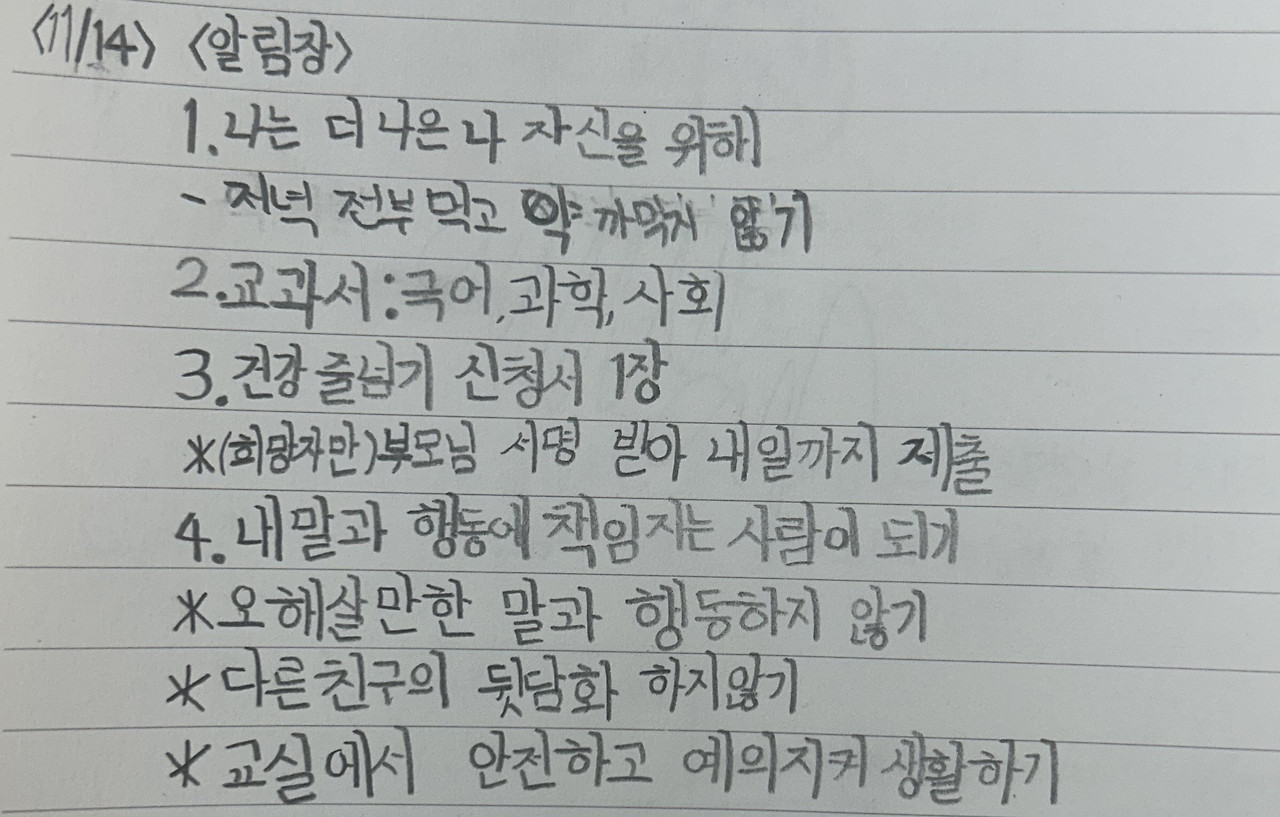 <11/14> <알림장>
1. 나는 더 나은 나 자신을 위해
- 저녁 전부 먹고 약 까먹지 않기
2. 교과서: 국어, 과학, 사회
3. 건강 줄넘기 신청서 1장
*(희망자만) 부모님 서명 받아 내일까지 제출
4. 내 말과 행동에 책임지는 사람이 되기
* 오해살만한 말과 행동하지 않기
* 다른 친구의 뒷담화 하지않기
* 교실에서 안전하고 예의지켜 생활하기